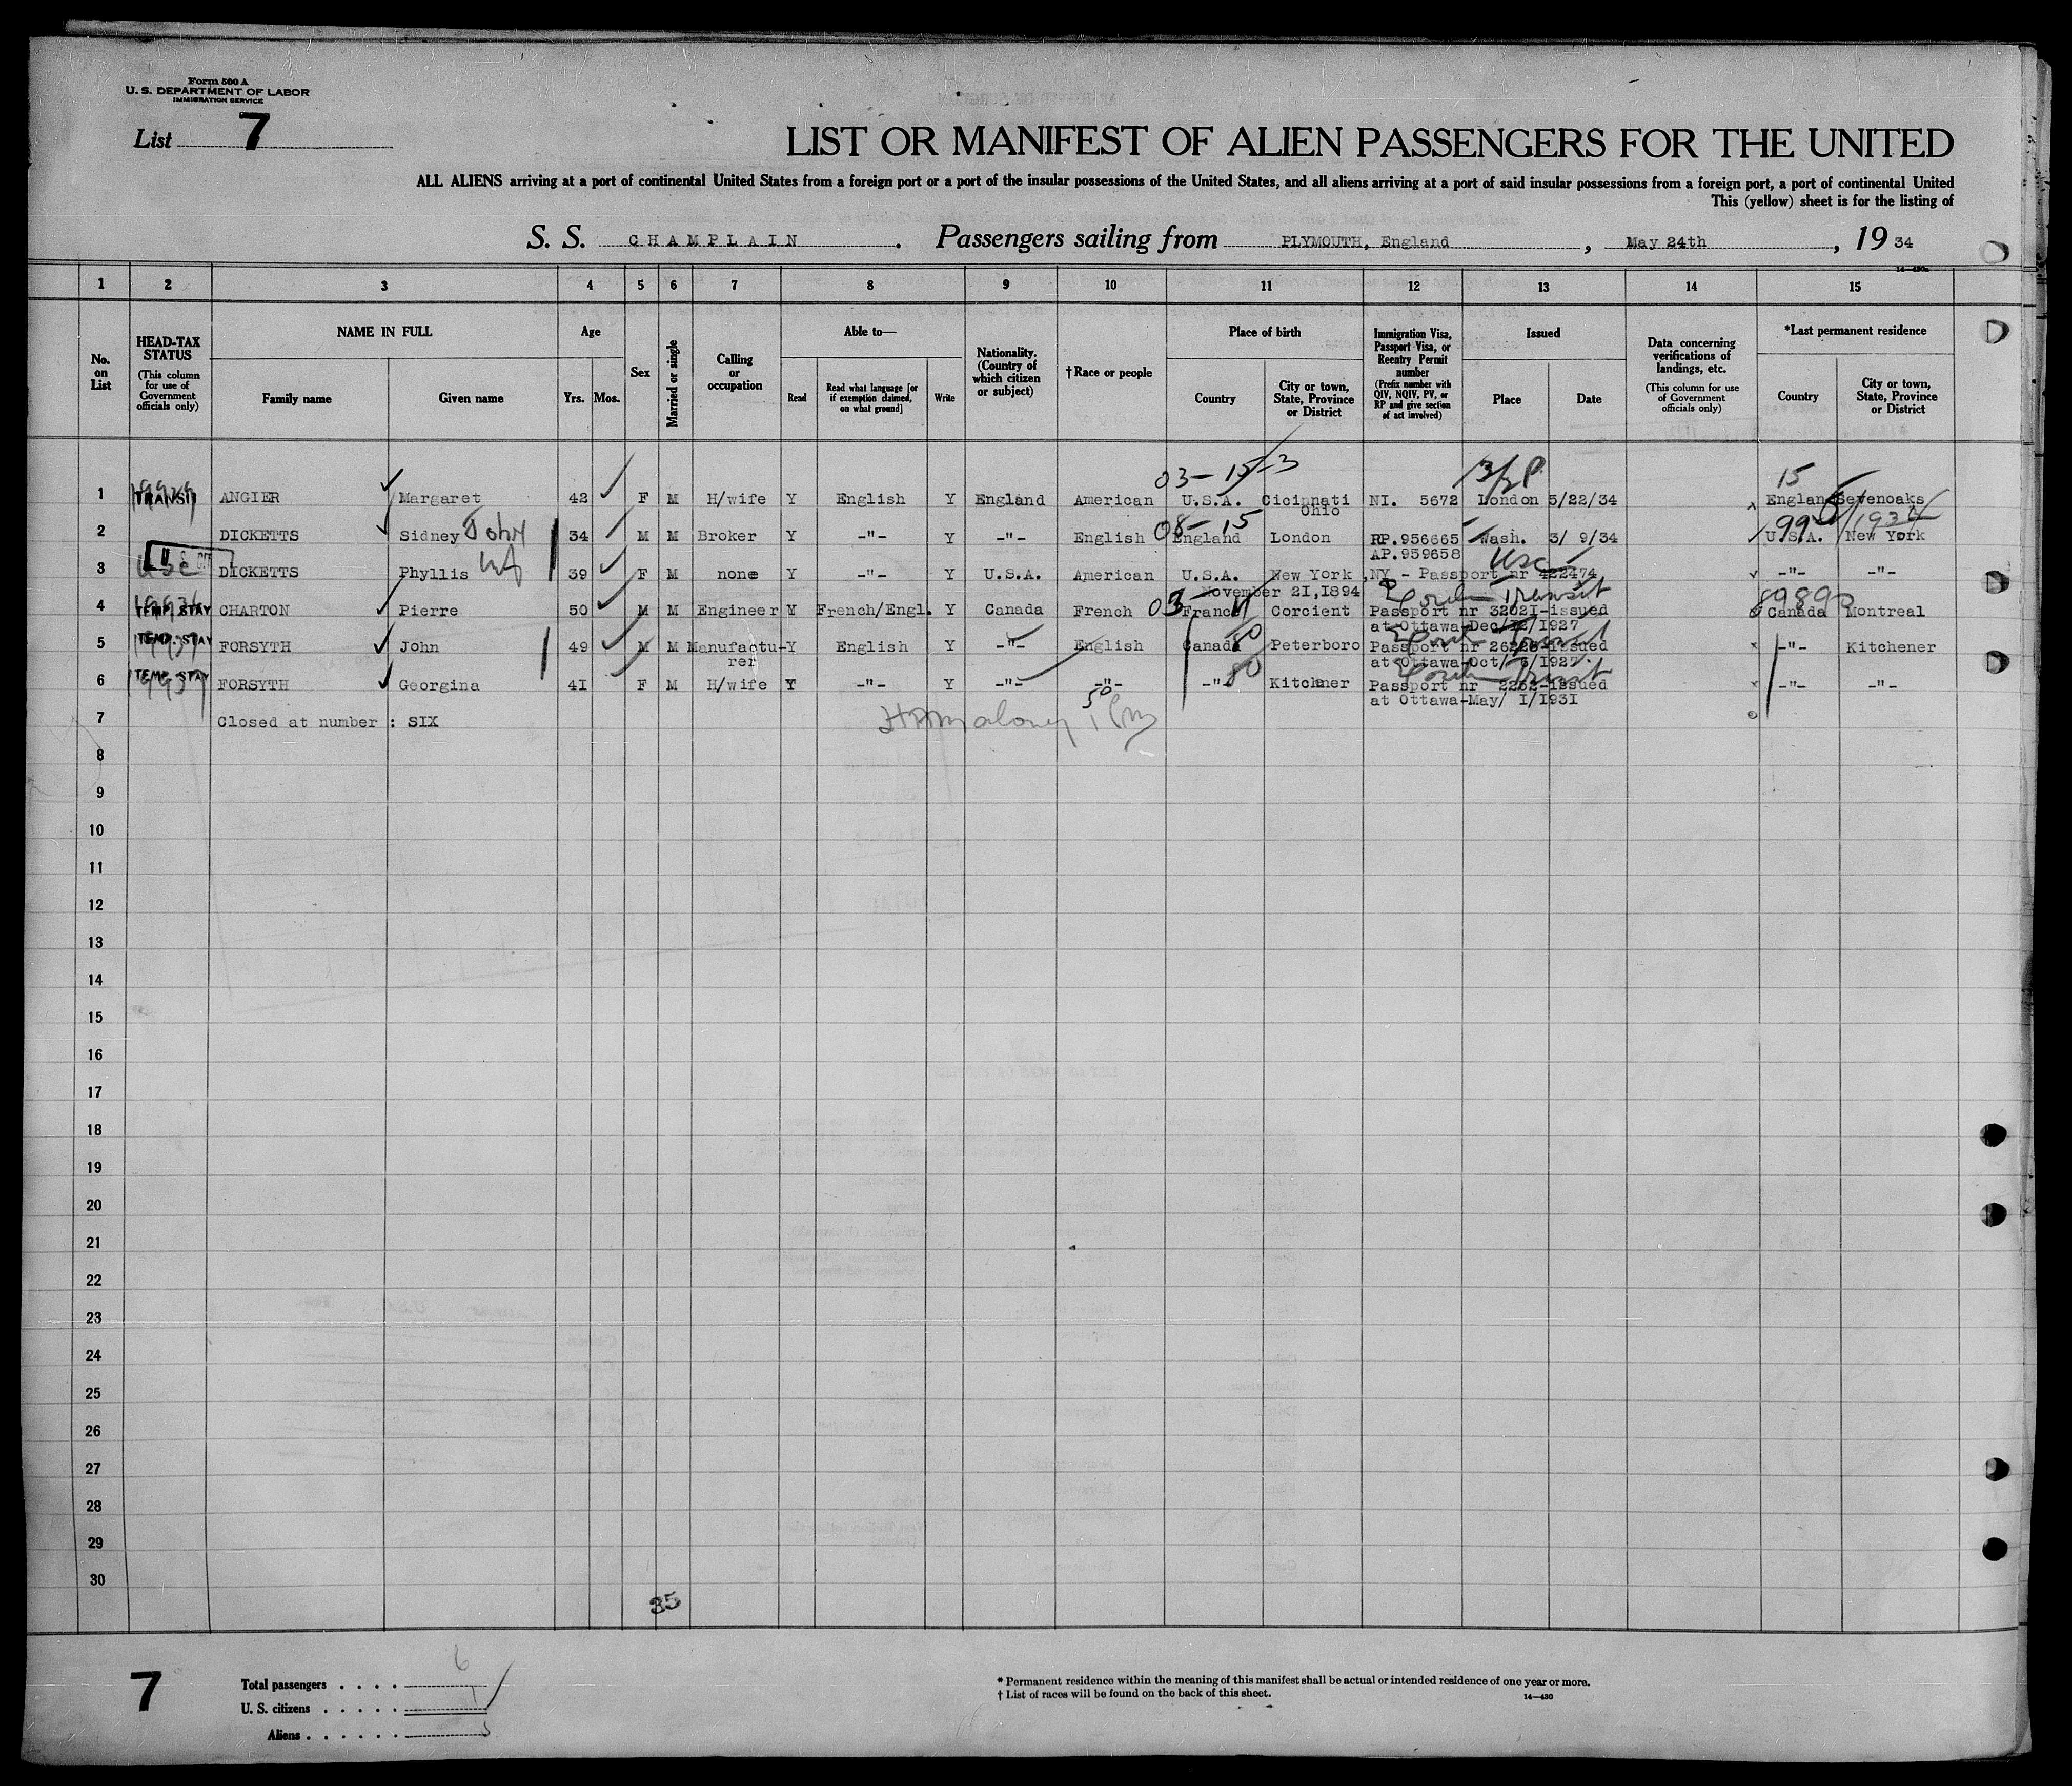 Form 500 A
U. S. DEPARTMENT OF LABOR
IMMIGRATION SERVICE
List 7
LIST OR MANIFEST OF ALIEN PASSENGERS FOR THE UNITED
ALL ALIENS arriving at a port of continental United States from a foreign port or a port of the insular possessions of the United States, and all aliens arriving at a port of said insular possessions from a foreign port, a port of continental United
This (yellow) sheet is for the listing of
S. S. CHAMPLAIN . Passengers sailing from PLYMOUTH, England , May 24th , 19 34
14-430a
1 2 3 4 5 6 7 8 9 10 11 12 13 14 15
No. on List
HEAD-TAX STATUS (This column for use of Government officials only)
NAME IN FULL
Family name Given name
Age
Yrs. Mos.
Sex
Married or single
Calling or occupation
Able to—
Read Read what language [or if exemption claimed, on what ground] Write
Nationality. (Country of which citizen or subject)
†Race or people
Place of birth
Country City or town, State, Province or District
Immigration Visa, Passport Visa, or Reentry Permit number (Prefix number with QIV, NQIV, PV, or RP and give section of act involved)
Issued
Place Date
Data concerning verifications of landings, etc. (This column for use of Government officials only)
*Last permanent residence
Country City or town, State, Province or District
03-15-3 3/2P 15
1 TRANSIT ANGIER Margaret 42 F M H/wife Y English Y England American U.S.A. Cicinnati Ohio NI. 5672 London 5/22/34 England Sevenoaks
08-15 99 1934
2 DICKETTS Sidney John 34 M M Broker Y -"- Y -"- English England London RP.956665 Wash. 3/ 9/34 U.S.A. New York
AP.959658 USC
3 USC DICKETTS Phyllis 39 F M none Y -"- Y U.S.A. American U.S.A. New York ,NY - Passport nr 422474 -"- -"-
November 21,1894 Transit
4 TEMP. STAY CHARTON Pierre 50 M M Engineer Y French/Engl. Y Canada French France Corcient Passport nr 32021-issued Canada Montreal
at Ottawa-Dec/12/1927
5 TEMP. STAY FORSYTH John 49 M M Manufacturer Y English Y -"- English Canada 80 Peterboro Passport nr 26228-issued -"- Kitchener
at Ottawa-Oct/ 6/1927.
6 TEMP. STAY FORSYTH Georgina 41 F M H/wife Y -"- Y -"- -"- -"- 80 Kitchner Passport nr 2252-issued -"- -"-
at Ottawa-May/ 1/1931
7 Closed at number : SIX
8
9
10
11
12
13
14
15
16
17
18
19
20
21
22
23
24
25
26
27
28
29
30
35
7
Total passengers . . . . 6
U. S. citizens . . . . . 1
Aliens . . . . . . 5
* Permanent residence within the meaning of this manifest shall be actual or intended residence of one year or more.
† List of races will be found on the back of this sheet. 14-430